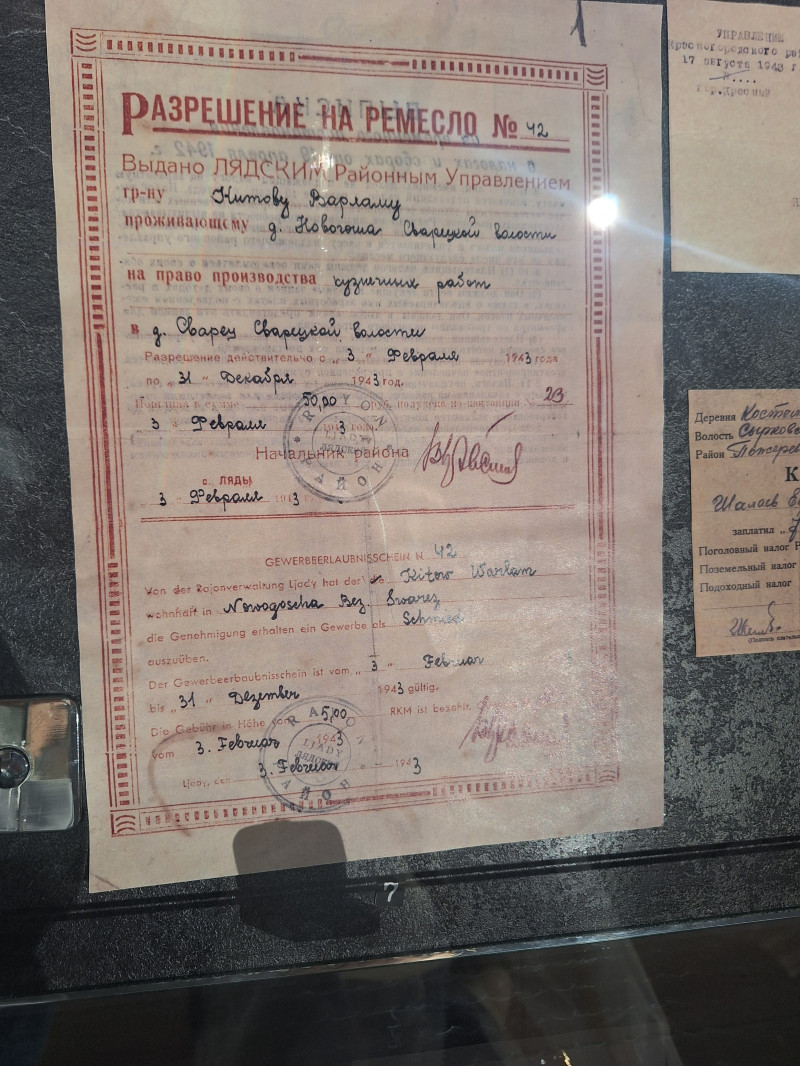 1
РАЗРЕШЕНИЕ НА РЕМЕСЛО № 42
Выдано ЛЯДСКИМ Районным Управлением
гр-ну Китову Варламу
проживающему д. Новогоша Сварецкой волости
на право производства кузнечных работ
в д. Сварец Сварецкой волости
Разрешение действительно с „ 3 “ Февраля 1943 года
по „ 31 “ Декабря 1943 год.
Пошлина в сумме 50,00 руб. получена по квитанции № 23
3 “ Февраля 1943 года
RAYON
LJADY
РАЙОН
Начальник района
с. ЛЯДЫ
3 “ Февраля 1943
GEWERBEERLAUBNISSCHEIN N 42
Von der Rajonverwaltung Ljady hat der Kitow Warlam
wohnhaft in Nowogoscha Bez. Swarez
die Genehmigung erhalten ein Gewerbe als Schmied
auszuüben.
Der Gewerbeerbaubnisschein ist vom „ 3 “ Februar 3
bis „ 31 “ Dezember 1943 gültig.
Die Gebühr in Höhe von 5,00 RKM ist bezahlt.
vom 3. Februar 1943
LJADY
РАЙОН
Ljady, den 3. Februar 1943
7
УПРАВЛЕНИЕ
Красногородского рай
17 августа 1943 г
гор. Красный
Деревня
Волость
Район
К
заплатил
Поголовный налог Р
Поземельный налог
Подоходный налог